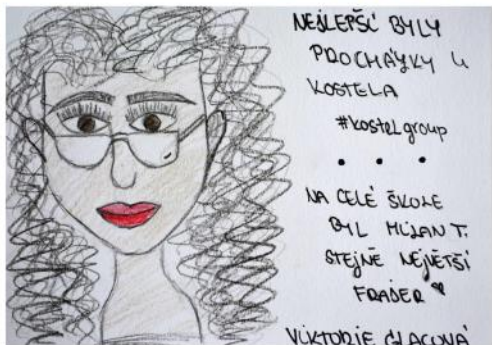 NEJLEPŠÍ BYLY
PROCHÁZKY U
KOSTELA
#kostelgroup
• • •
NA CELÉ ŠKOLE
BYL MILAN T.
STEJNĚ NEJVĚTŠÍ
FRAJER ♥
VIKTORIE